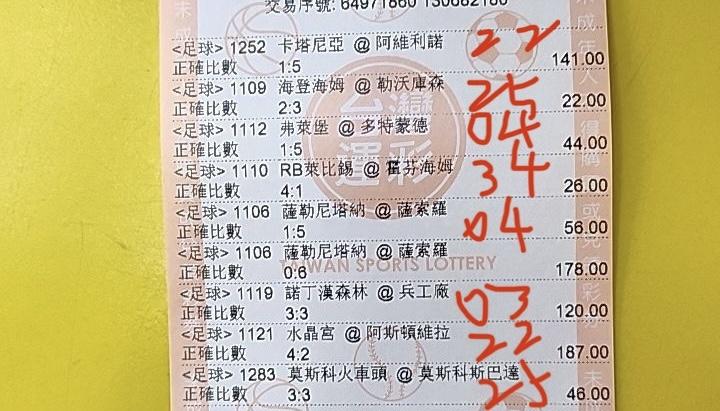 交易序號: 64971860 130682180
<足球> 1252 卡塔尼亞 @ 阿維利諾 22
正確比數 1:5 141.00
<足球> 1109 海登海姆 @ 勒沃庫森 25
正確比數 2:3 22.00
<足球> 1112 弗萊堡 @ 多特蒙德 04
正確比數 1:5 44.00
<足球> 1110 RB萊比錫 @ 霍芬海姆 34
正確比數 4:1 26.00
<足球> 1106 薩勒尼塔納 @ 薩索羅 04
正確比數 1:5 56.00
<足球> 1106 薩勒尼塔納 @ 薩索羅
正確比數 0:6 178.00
<足球> 1119 諾丁漢森林 @ 兵工廠 03
正確比數 3:3 120.00
<足球> 1121 水晶宮 @ 阿斯頓維拉 22
正確比數 4:2 187.00
<足球> 1283 莫斯科火車頭 @ 莫斯科斯巴達 25
正確比數 3:3 46.00
台灣
運彩
TAIWAN SPORTS LOTTERY